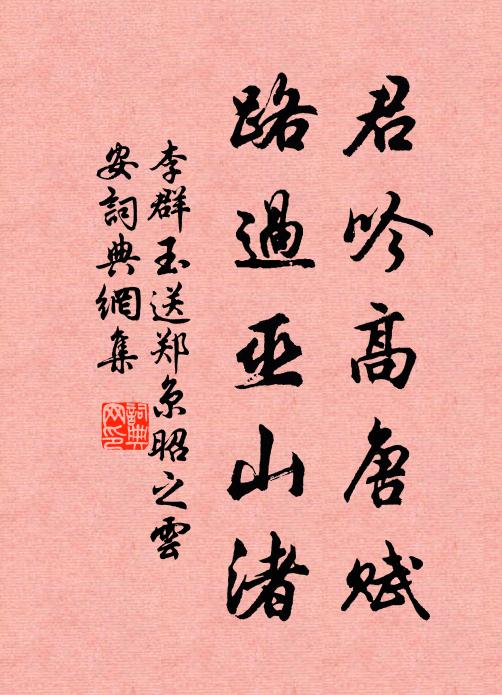 君吟高唐赋
路過巫山渚
李群玉送郑京昭之雲
安詞典網集
詞典网印